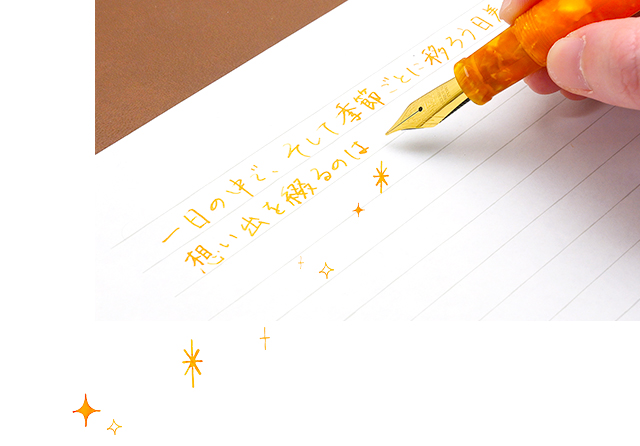 一日の中で、そして季節ごとに移ろう日
想い出を綴るのは